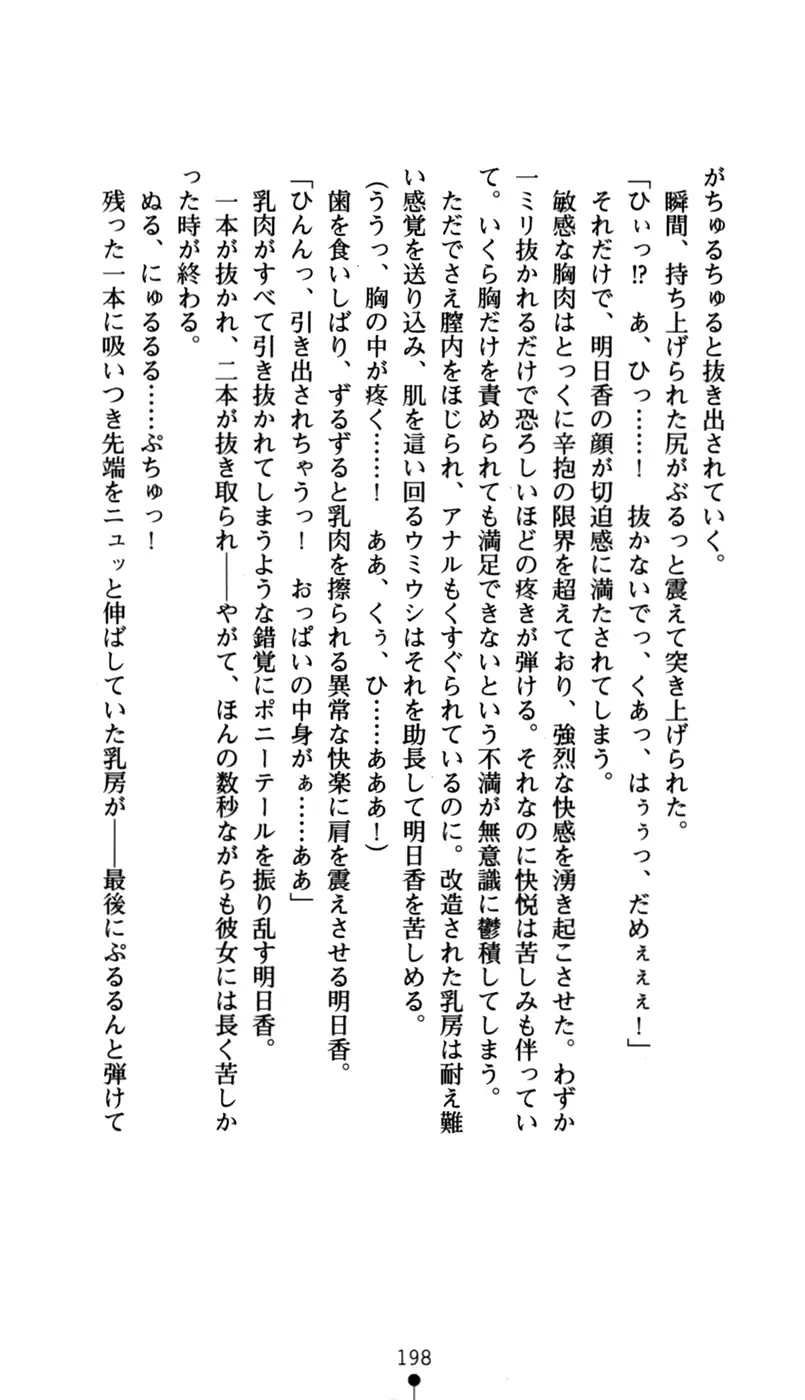 がちゅるちゅると抜き出されていく。
瞬間、持ち上げられた尻がぶるっと震えて突き上げられた。
「ひぃっ!? あ、ひっ……! 抜かないでっ、くあっ、はぅぅっ、だめぇぇぇ!」
それだけで、明日香の顔が切迫感に満たされてしまう。
敏感な胸肉はとっくに辛抱の限界を超えており、強烈な快感を湧き起こさせた。わずか
一ミリ抜かれるだけで恐ろしいほどの疼きが弾ける。それなのに快悦は苦しみも伴ってい
て。いくら胸だけを責められても満足できないという不満が無意識に鬱積してしまう。
ただでさえ膣内をほじられ、アナルもくすぐられているのに。改造された乳房は耐え難
い感覚を送り込み、肌を這い回るウミウシはそれを助長して明日香を苦しめる。
(ううっ、胸の中が疼く……! ああ、くぅ、ひ……あああ!)
歯を食いしばり、ずるずると乳肉を擦られる異常な快楽に肩を震えさせる明日香。
「ひんんっ、引き出されちゃうっ! おっぱいの中身がぁ……ああ」
乳肉がすべて引き抜かれてしまうような錯覚にポニーテールを振り乱す明日香。
一本が抜かれ、二本が抜き取られ――やがて、ほんの数秒ながらも彼女には長く苦しか
った時が終わる。
ぬる、にゅるるる……ぷちゅっ!
残った一本に吸いつき先端をニュッと伸ばしていた乳房が――最後にぷるるんと弾けて
198